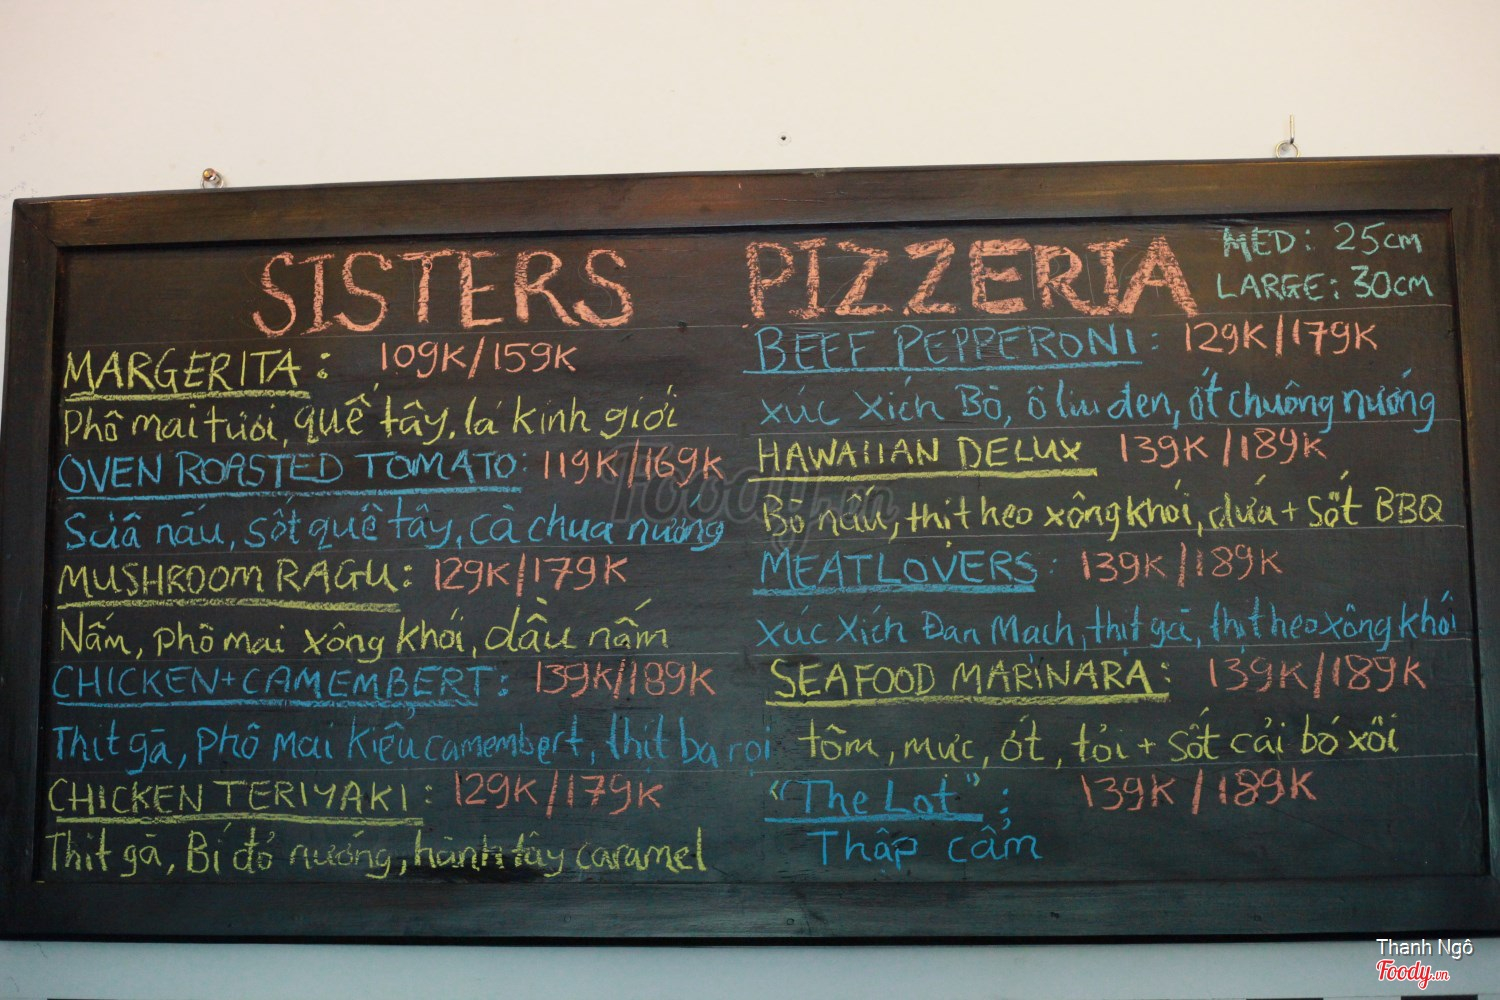 SISTERS PIZZERIA
MED: 25cm
LARGE: 30cm
MARGERITA: 109K/159K
Phô mai tươi, quế tây, lá kinh giới
OVEN ROASTED TOMATO: 119K/169K
Sữa nấu, sốt quế tây, cà chua nướng
MUSHROOM RAGU: 129K/179K
Nấm, phô mai xông khói, dầu nấm
CHICKEN+CAMEMBERT: 139K/189K
Thịt gà, phô mai kiểu camembert, thịt ba rọi
CHICKEN TERIYAKI: 129K/179K
Thịt gà, Bí đỏ nướng, hành tây caramel
BEEF PEPPERONI: 129K/179K
xúc xích Bò, ô liu đen, ớt chuông nướng
HAWAIIAN DELUX 139K/189K
Bò nấu, thịt heo xông khói, dứa + Sốt BBQ
MEATLOVERS: 139K/189K
xúc xích Đan Mạch, thịt gà, thịt heo xông khói
SEAFOOD MARINARA: 139K/189K
tôm, mực, ớt, tỏi + sốt cải bó xôi
"The Lot": 139K/189K
Thập cẩm
Foody.vn
Thanh Ngô
Foody.vn